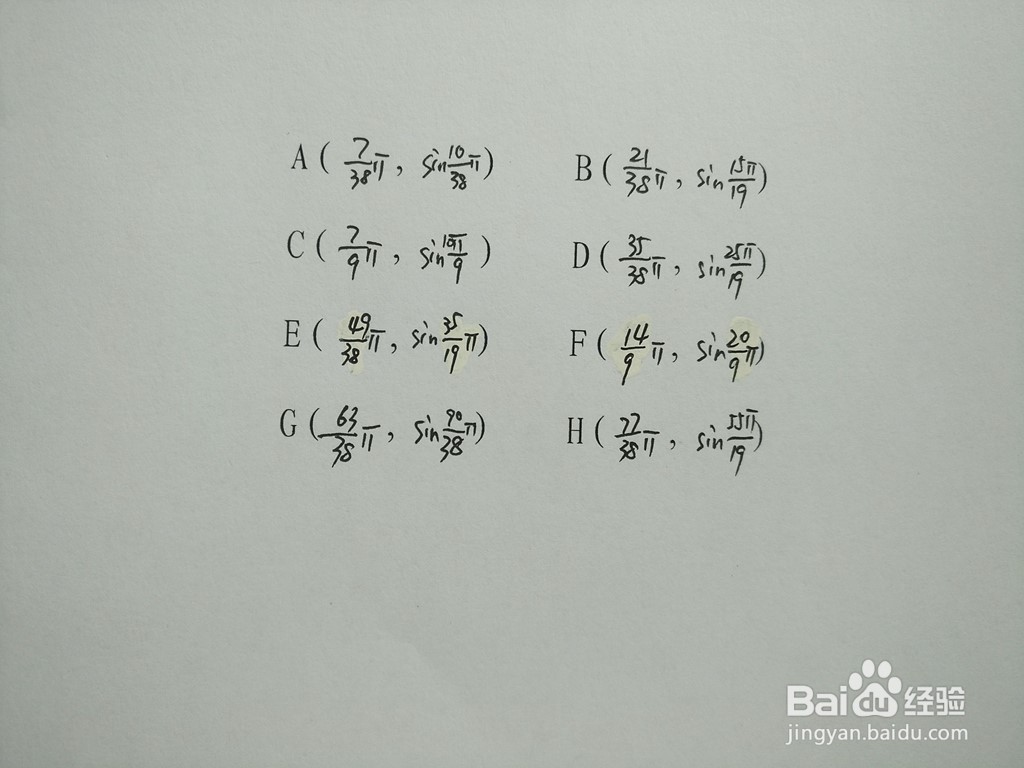 A ( 7/38 π , sin 10/38 π ) B ( 21/38 π , sin 15π/19 )
C ( 7/9 π , sin 10π/9 ) D ( 35/38 π , sin 25π/19 )
E ( 49/38 π , sin 35/19 π ) F ( 14/9 π , sin 20/9 π )
G ( 63/38 π , sin 90/38 π ) H ( 77/38 π , sin 55π/19 )
Bai du 经验
jingyan.baidu.com